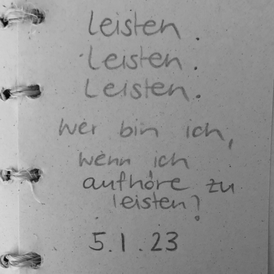 leisten.
Leisten.
Leisten.
wer bin ich,
wenn ich
aufhöre zu
leisten?
5.1.23